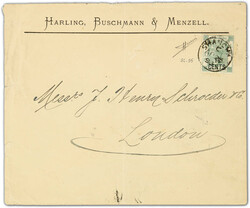 HARLING, BUSCHMANN & MENZELL.
CENTS
Messrs J. Henry Schroeder & Co
London